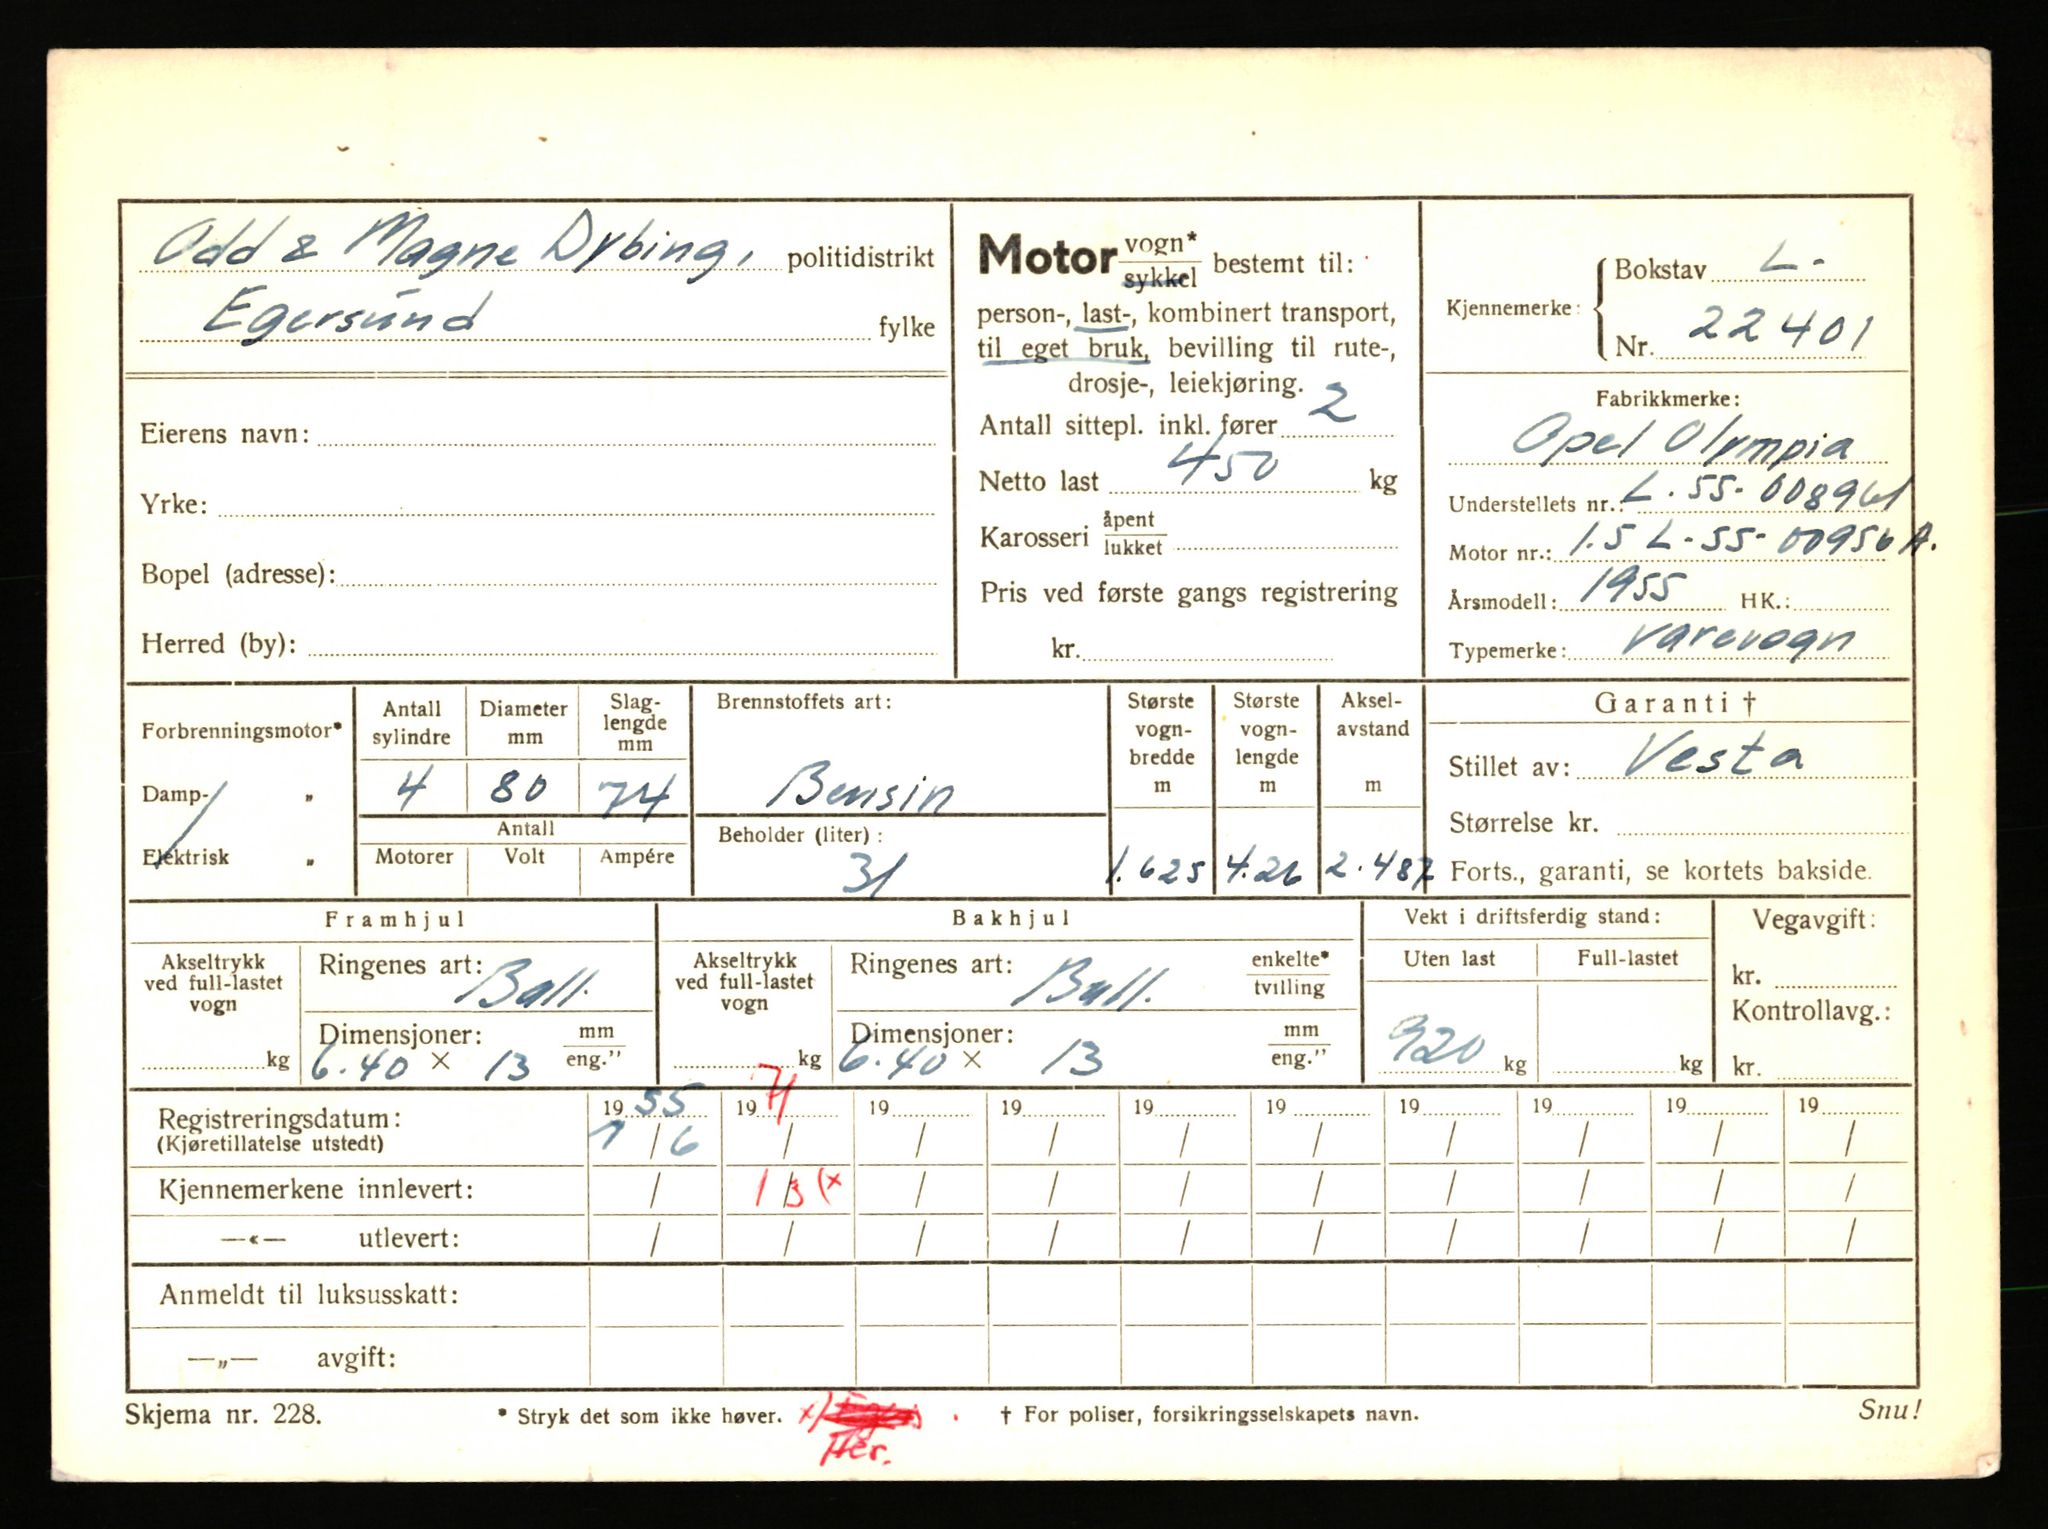 Odd & Magne Dybing, politidistrikt
Egersund fylke
Eierens navn:
Yrke:
Bopel (adresse):
Herred (by):
Motor vogn* / sykkel bestemt til:
person-, last-, kombinert transport,
til eget bruk, bevilling til rute-,
drosje-, leiekjøring.
Antall sittepl. inkl. fører 2
Netto last 450 kg
Karosseri åpent / lukket
Pris ved første gangs registrering
kr.
Kjennemerke: Bokstav L-
Nr. 22401
Fabrikkmerke:
Opel Olympia
Understellets nr.: L-55-008961
Motor nr.: 1.5 L-55-00956 A.
Årsmodell: 1955 HK.:
Typemerke: varevogn
Forbrenningsmotor*
Damp- „
Elektrisk „
Antall sylindre 4
Diameter mm 80
Slag-lengde mm 74
Antall
Motorer Volt Ampére
Brennstoffets art:
Bensin
Beholder (liter):
31
Største vogn-bredde m 1.625
Største vogn-lengde m 4.26
Aksel-avstand m 2.487
Garanti †
Stillet av: Vesta
Størrelse kr.
Forts., garanti, se kortets bakside.
Framhjul
Akseltrykk ved full-lastet vogn kg
Ringenes art: Ball.
Dimensjoner: mm / eng."
6.40 × 13
Bakhjul
Akseltrykk ved full-lastet vogn kg
Ringenes art: Ball. enkelte* / tvilling
Dimensjoner: mm / eng."
6.40 × 13
Vekt i driftsferdig stand:
Uten last Full-lastet
920 kg kg
Vegavgift:
kr.
Kontrollavg.:
kr.
Registreringsdatum: 1955 1971 19 19 19 19 19 19 19 19
(Kjøretillatelse utstedt) 7/6 / / / / / / / / /
Kjennemerkene innlevert: / 1/3 (x / / / / / / / /
—«— utlevert: / / / / / / / / / /
Anmeldt til luksusskatt:
—„— avgift:
Skjema nr. 228. * Stryk det som ikke høver. x) † For poliser, forsikringsselskapets navn. Snu!
Her.